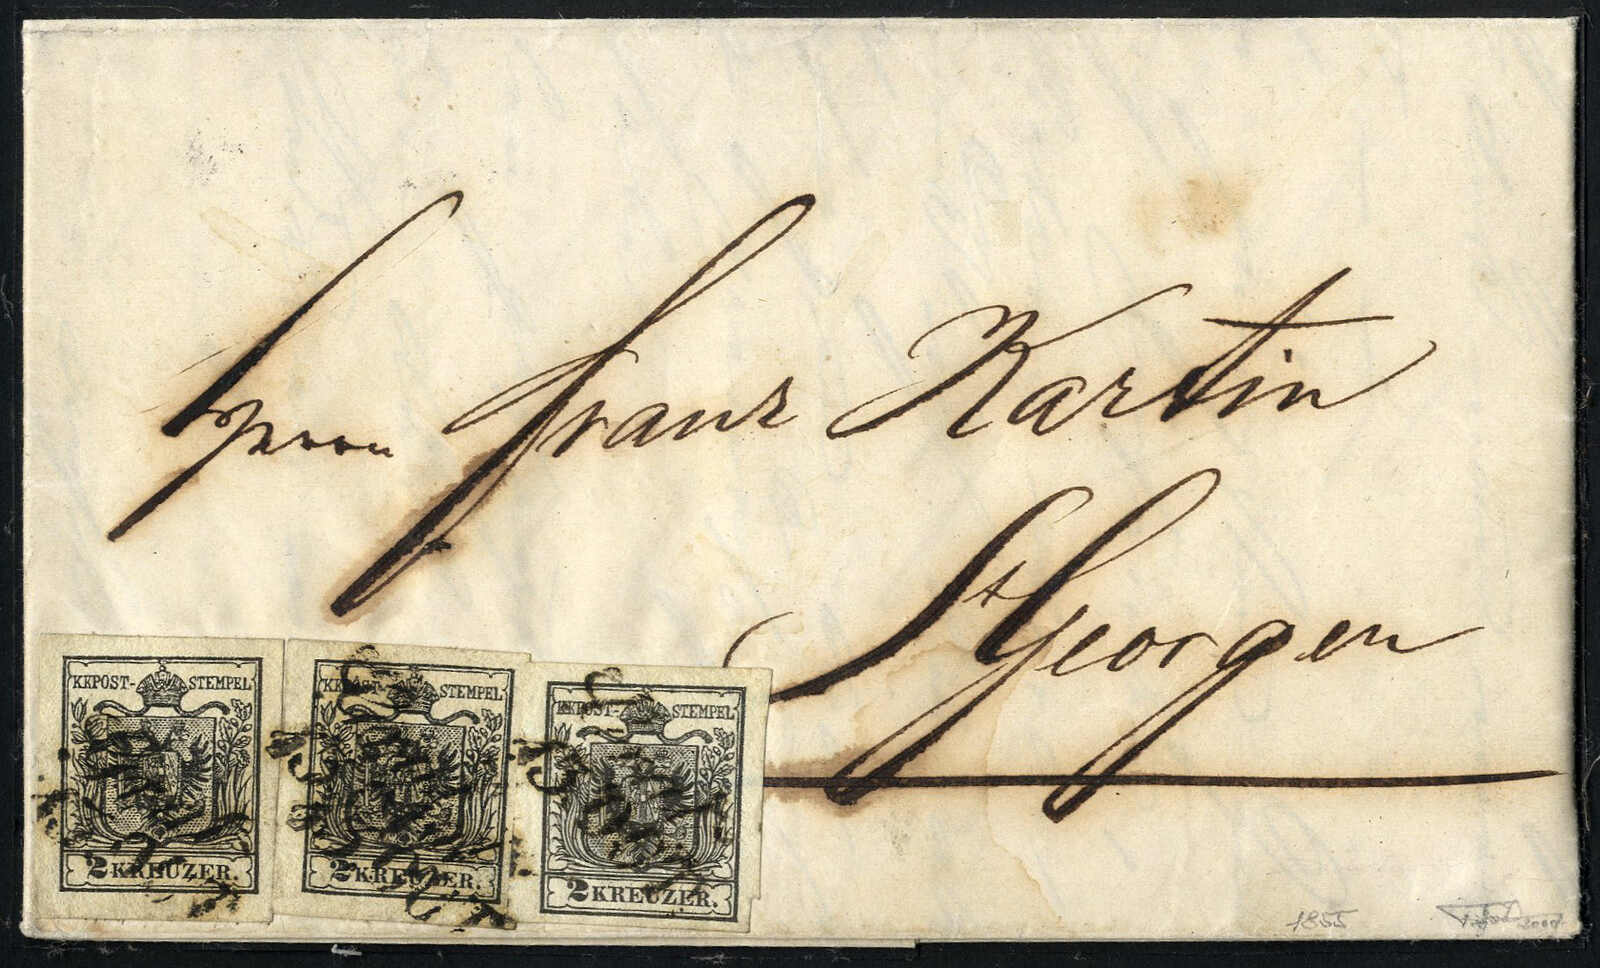 Herrn Franz Kartin
St Georgen
KKPOST-STEMPEL
2 KREUZER.
KKPOST-STEMPEL
2 KREUZER.
KKPOST-STEMPEL
2 KREUZER.
1855